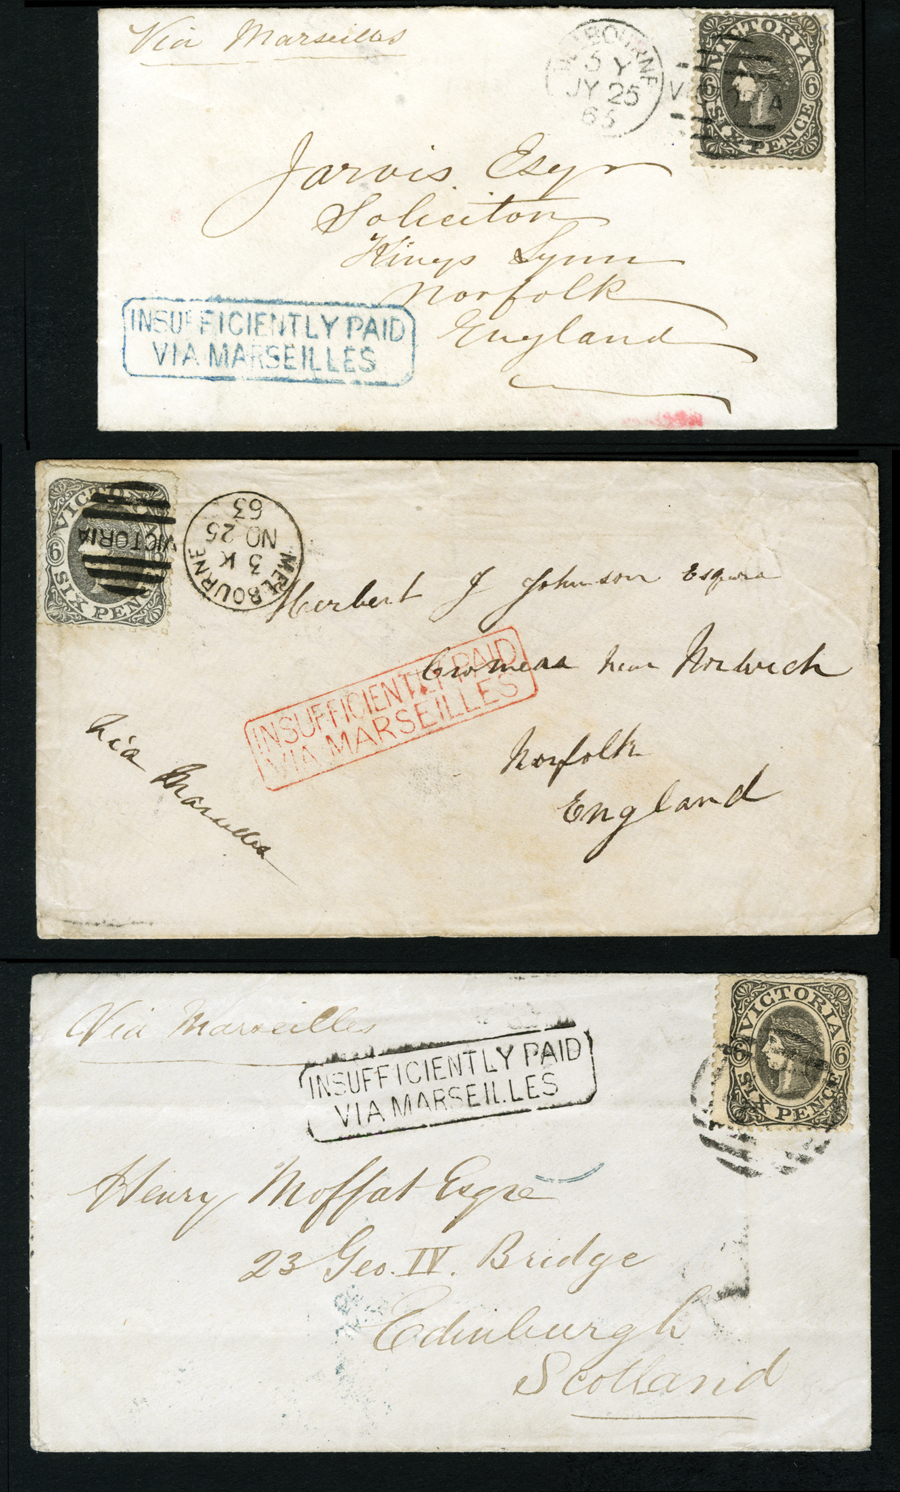 Via Marseilles
MELBOURNE
3 Y
JY 25
65
VICTORIA
6 6
SIX PENCE
Jarvis Esqr
Soliciton
Kings Lynn
Norfolk
England
INSUFFICIENTLY PAID
VIA MARSEILLES
VICTO
6
SIX PENC
VICTORIA
MELBOURNE
3 K
NO 25
63
Herbert J Johnson Esqure
Cromer near Norwich
Norfolk
England
INSUFFICIENTLY PAID
VIA MARSEILLES
via Marseilles
Via Marseilles
INSUFFICIENTLY PAID
VIA MARSEILLES
VICTORIA
6 6
SIX PENCE
Henry Moffat Esqre
23 Geo. IV. Bridge
Edinburgh
Scotland